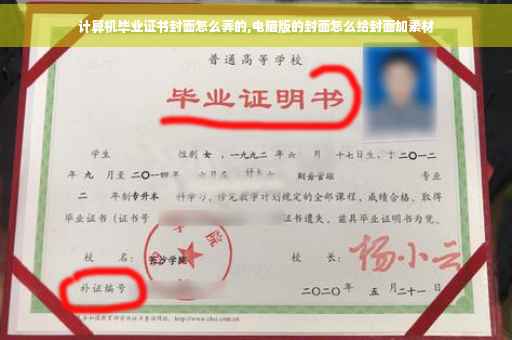 计算机毕业证书封面怎么弄的,电脑版的封面怎么给封面加素材
普通高等学校
毕业证明书
学生 性别 女 ,一九九二 年 六 月 十七日生，于 二〇一二
年 九 月至 二〇一四 年 六月在 财务管理 专业
二 年制 专升本 科学习，修完教学计划规定的全部课程，成绩合格，取得
毕业证书（证书号 证书遗失，兹具毕业证明书为凭。
校 名： 长沙学院 校 长： 杨小云
补证编号 二〇二〇年 五 月 二十一 日
http://www.chsi.com.cn